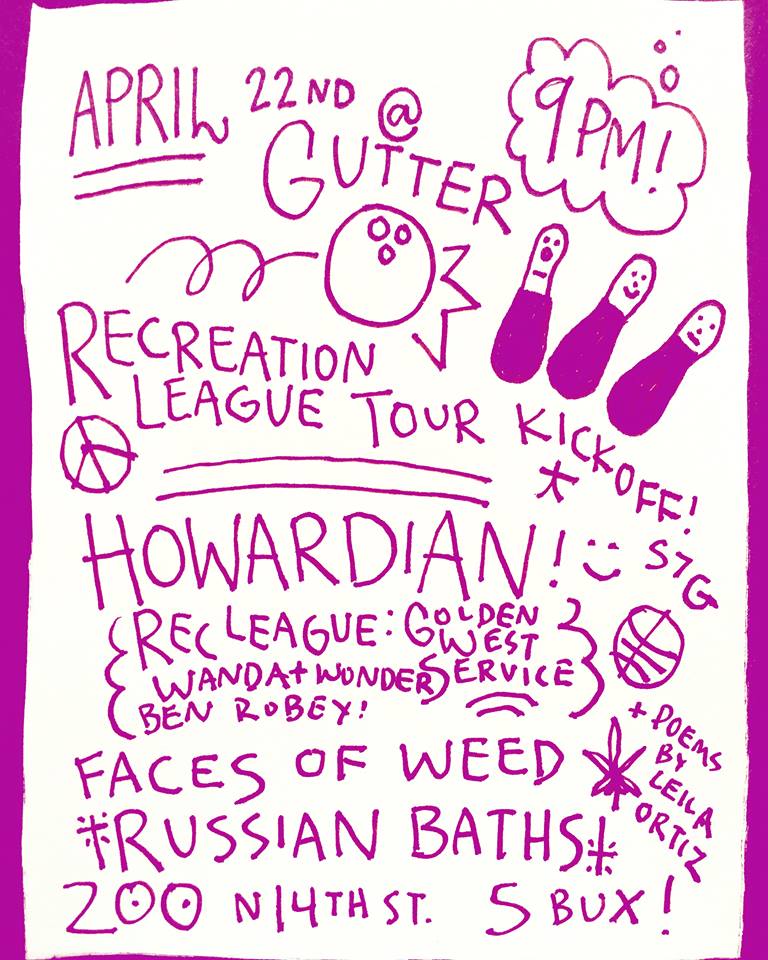 APRIL 22ND @
GUTTER
9PM!
RECREATION
LEAGUE TOUR KICKOFF!
HOWARDIAN!
REC LEAGUE: GOLDEN
WEST
WANDA + WONDER SERVICE
BEN ROBEY!
FACES OF WEED
+ POEMS
BY
LEILA
ORTIZ
RUSSIAN BATHS
200 N 14TH ST. 5 BUX!